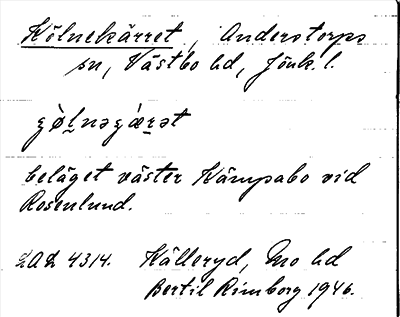 Kölnekärret, Anderstorps
sn, Västbo hd, Jönk. l.
beläget väster Kämpabo vid
Rosenlund.
LAL 4314. Källeryd, Mo hd
Bertil Rimborg 1946.